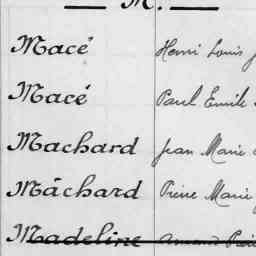 M.
Macé Henri Louis
Macé Paul Emile
Machard Jean Marie
Mâchard Pierre Marie
Madeline